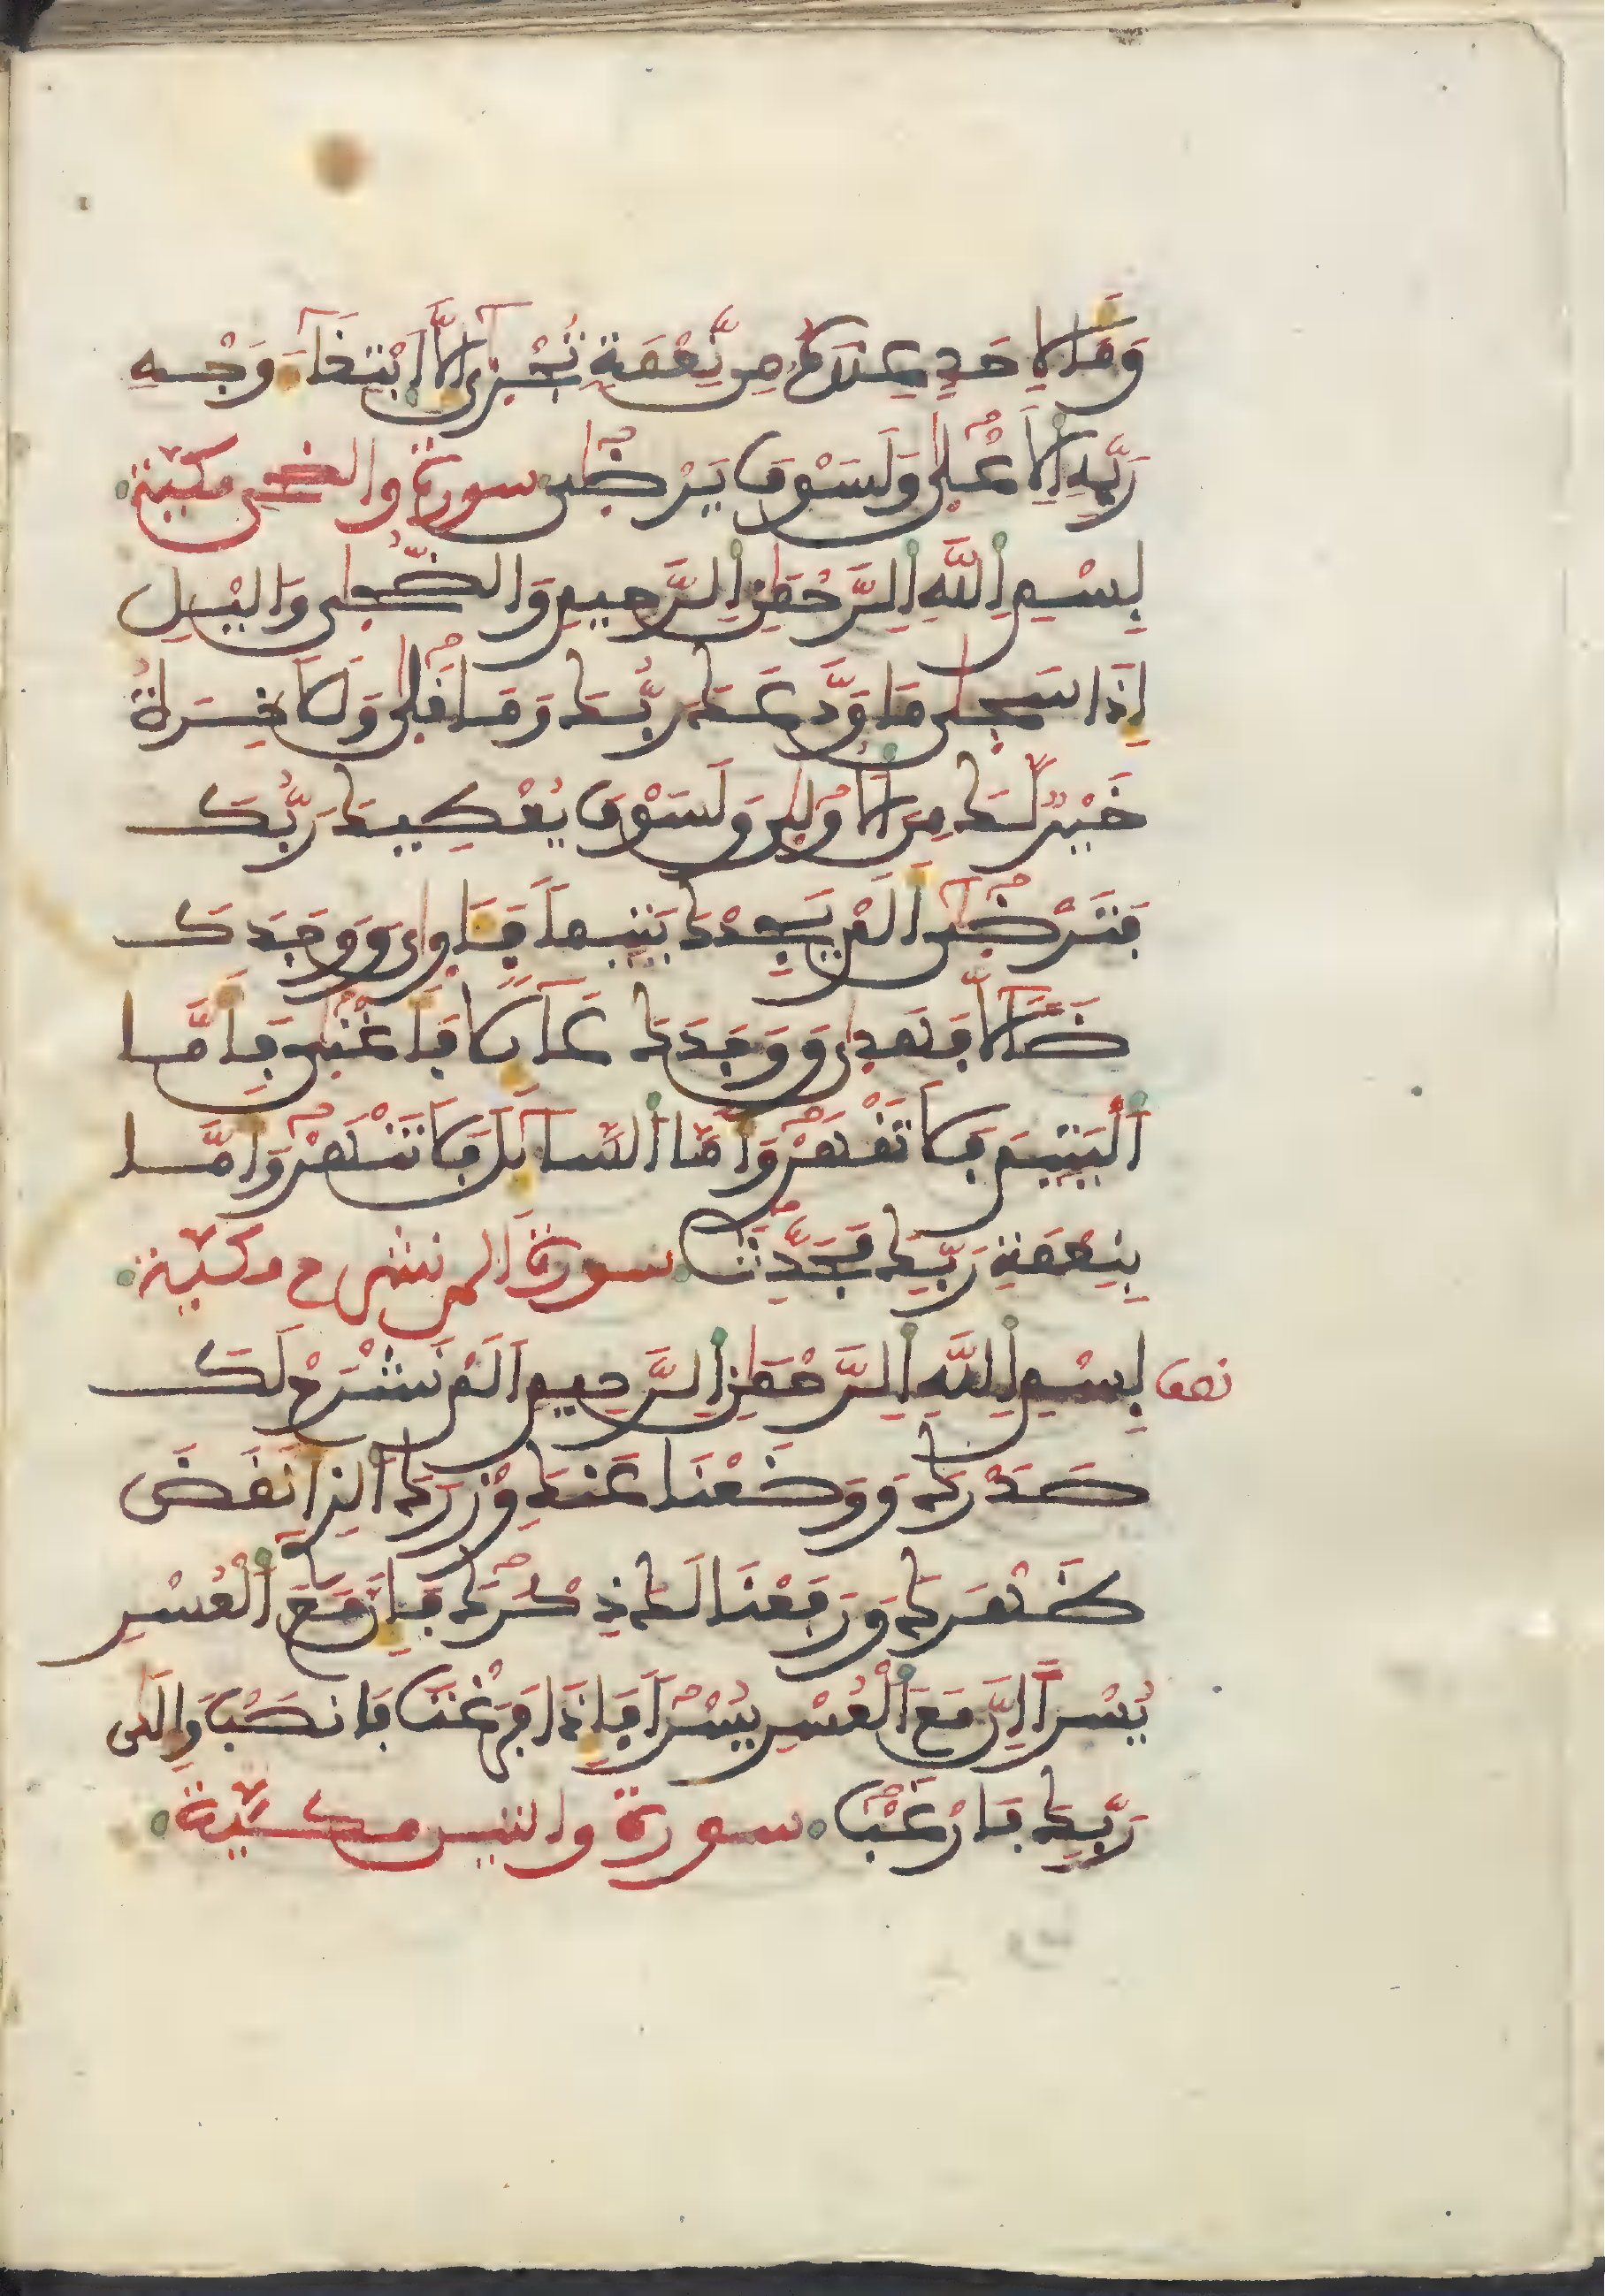 وَمَا لِأَحَدٍ عِندَهُ مِن نِّعْمَةٍ تُجْزَىٰٓ إِلَّا ٱبْتِغَآءَ وَجْهِ
رَبِّهِ ٱلْأَعْلَىٰ وَلَسَوْفَ يَرْضَىٰ سورة والضحى مكية
بِسْمِ ٱللَّهِ ٱلرَّحْمَٰنِ ٱلرَّحِيمِ وَالضُّحَىٰ وَاليْلِ
إِذَا سَجَىٰ مَا وَدَّعَكَ رَبُّكَ وَمَا قَلَىٰ وَلَلَاخِرَةُ
خَيْرٌ لَّكَ مِنَ ٱلُاولَىٰ وَلَسَوْفَ يُعْطِيكَ رَبُّكَ
فَتَرْضَىٰٓ أَلَمْ يَجِدْكَ يَتِيماً فَـَٔاوَىٰ وَوَجَدَكَ
ضَآلًّا فَهَدَىٰ وَوَجَدَكَ عَآئِلًا فَأَغْنَىٰ فَأَمَّا
ٱلْيَتِيمَ فَلَا تَقْهَرْ وَأَمَّا ٱلسَّآئِلَ فَلَا تَنْهَرْ وَأَمَّا
بِنِعْمَةِ رَبِّكَ فَحَدِّثْ سورة ألم نشرح مكية
نصف بِسْمِ ٱللَّهِ ٱلرَّحْمَٰنِ ٱلرَّحِيمِ أَلَمْ نَشْرَحْ لَكَ
صَدْرَكَ وَوَضَعْنَا عَنكَ وِزْرَكَ ٱلذِي أَنقَضَ
ظَهْرَكَ وَرَفَعْنَا لَكَ ذِكْرَكَ فَإِنَّ مَعَ ٱلْعُسْرِ
يُسْراً إِنَّ مَعَ ٱلْعُسْرِ يُسْراً فَإِذَا فَرَغْتَ فَانصَبْ وَإِلَىٰ
رَبِّكَ فَارْغَبْ سورة والتين مكية